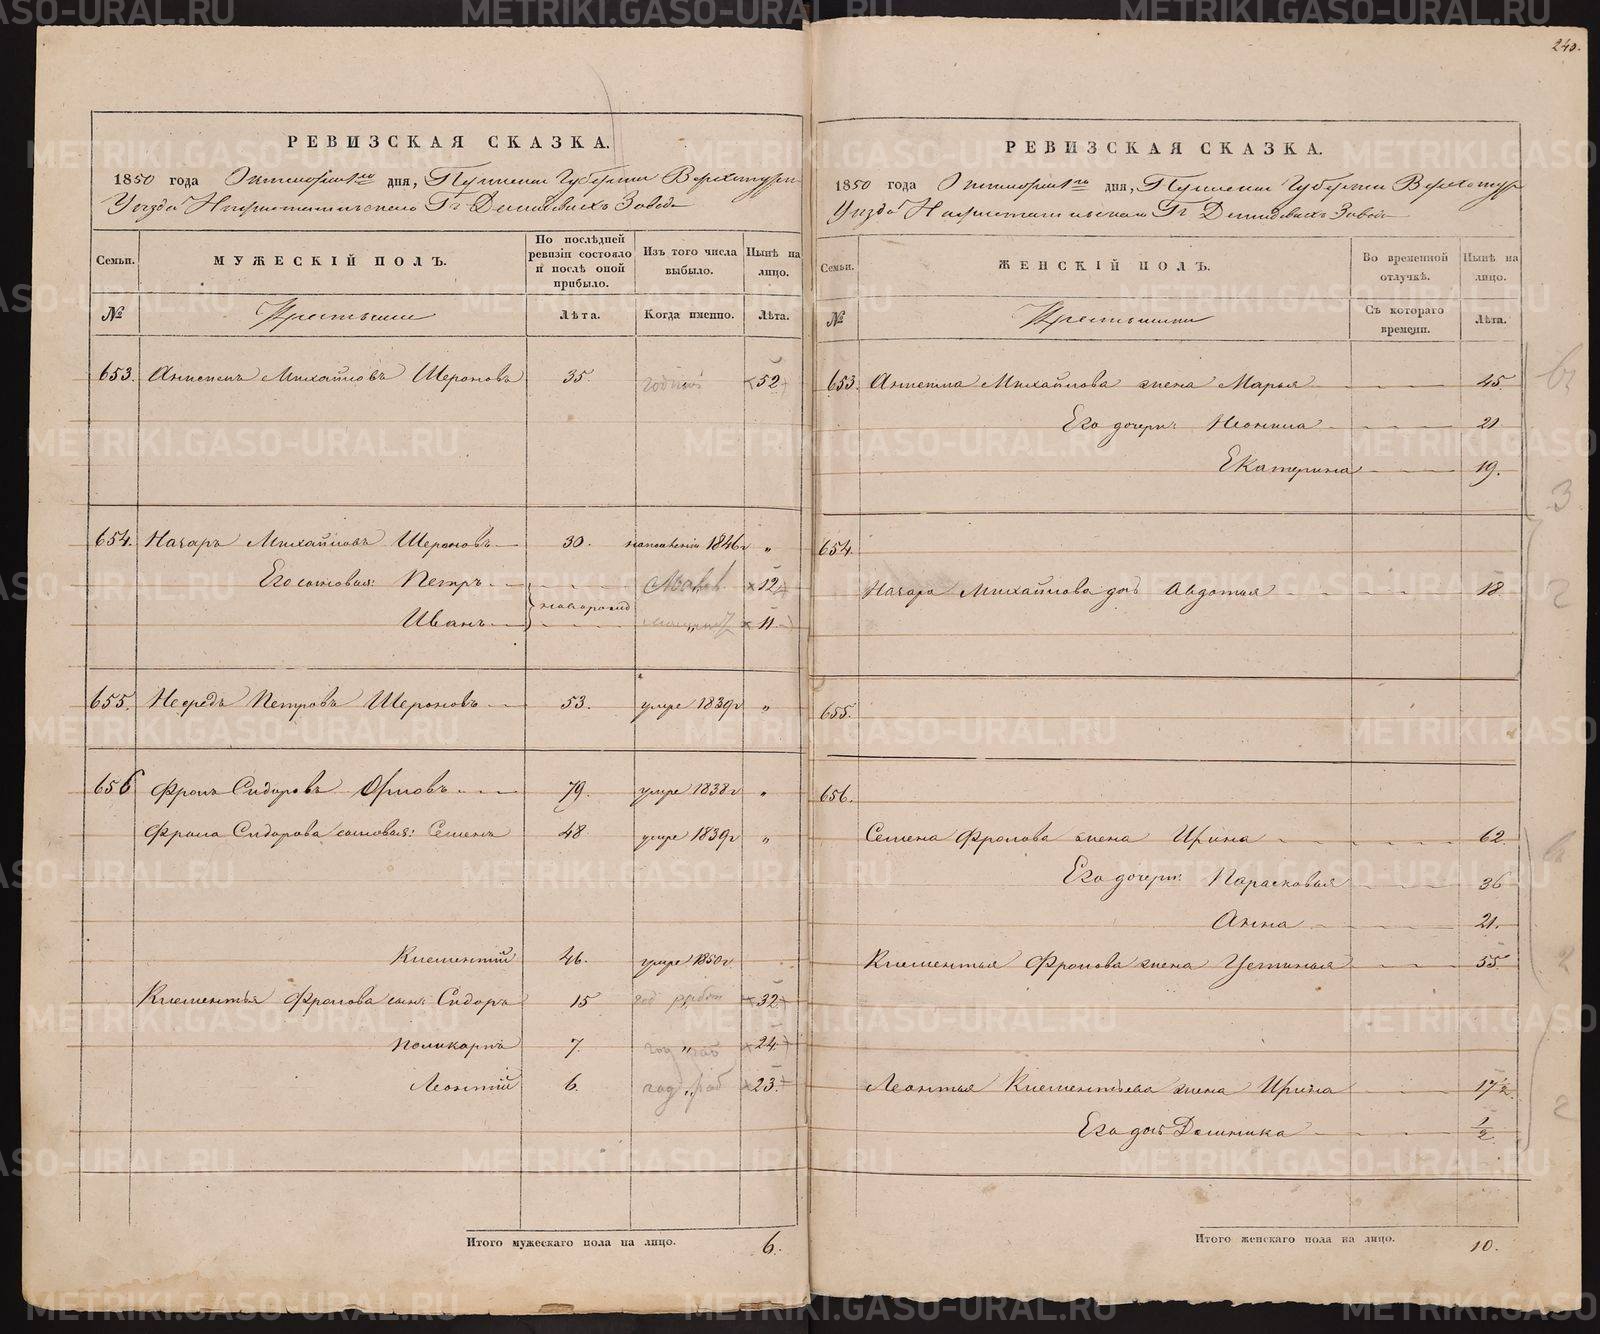 240.
РЕВИЗСКАЯ СКАЗКА.
1850 года Октября 1го дня, Пермской Губернии Верхотурск.
Уезда Нижнетагильского Гг. Демидовыхъ Завода
Семьи. МУЖЕСКІЙ ПОЛЪ. По послѣдней ревизіи состояло и послѣ оной прибыло. Изъ того числа выбыло. Нынѣ на лицо.
№ Крестьяне Лѣта. Когда именно. Лѣта.
653. Михайловъ Шероновъ 35. годной 52
654. Назаръ Михайловъ Шероновъ 30. 1846 г „
Его сыновья: Петръ новорожд 12
Иванъ 11
655. Петровъ Шероновъ 53. умре 1839 г „
656 Фролъ Сидоровъ Орловъ 79. умре 1838 г „
Фрола Сидорова сыновья: Семенъ 48. умре 1839 г „
Климентій 46. умре 1850 г.
Климентья Фролова сын: Сидоръ 15 год „ 32
Поликарпъ 7. год „ 24
Леонтій 6. год „ раб 23.
Итого мужескаго пола на лицо. 6.
РЕВИЗСКАЯ СКАЗКА.
1850 года Октября 1го дня, Пермской Губернии Верхотур
Уезда Нижнетагильского Гг. Демидовыхъ Завода
Семьи. ЖЕНСКІЙ ПОЛЪ. Во временной отлучкѣ. Нынѣ на лицо.
№ Крестьянки Съ котораго времени. Лѣта.
653. Михайлова жена Марья 45.
Его дочери: Неонила 21
Екатерина 19.
654.
Назара Михайлова дочь Авдотья 18
655.
656.
Семена Фролова жена Ирина 62.
Его дочери: Парасковья 36
Анна 21.
Климентья Фролова жена Устинья 55
Леонтья Климентьева жена Ирина 17 1/2.
Его дочь Домника 1/2
Итого женскаго пола на лицо. 10.
METRIKI.GASO-URAL.RU